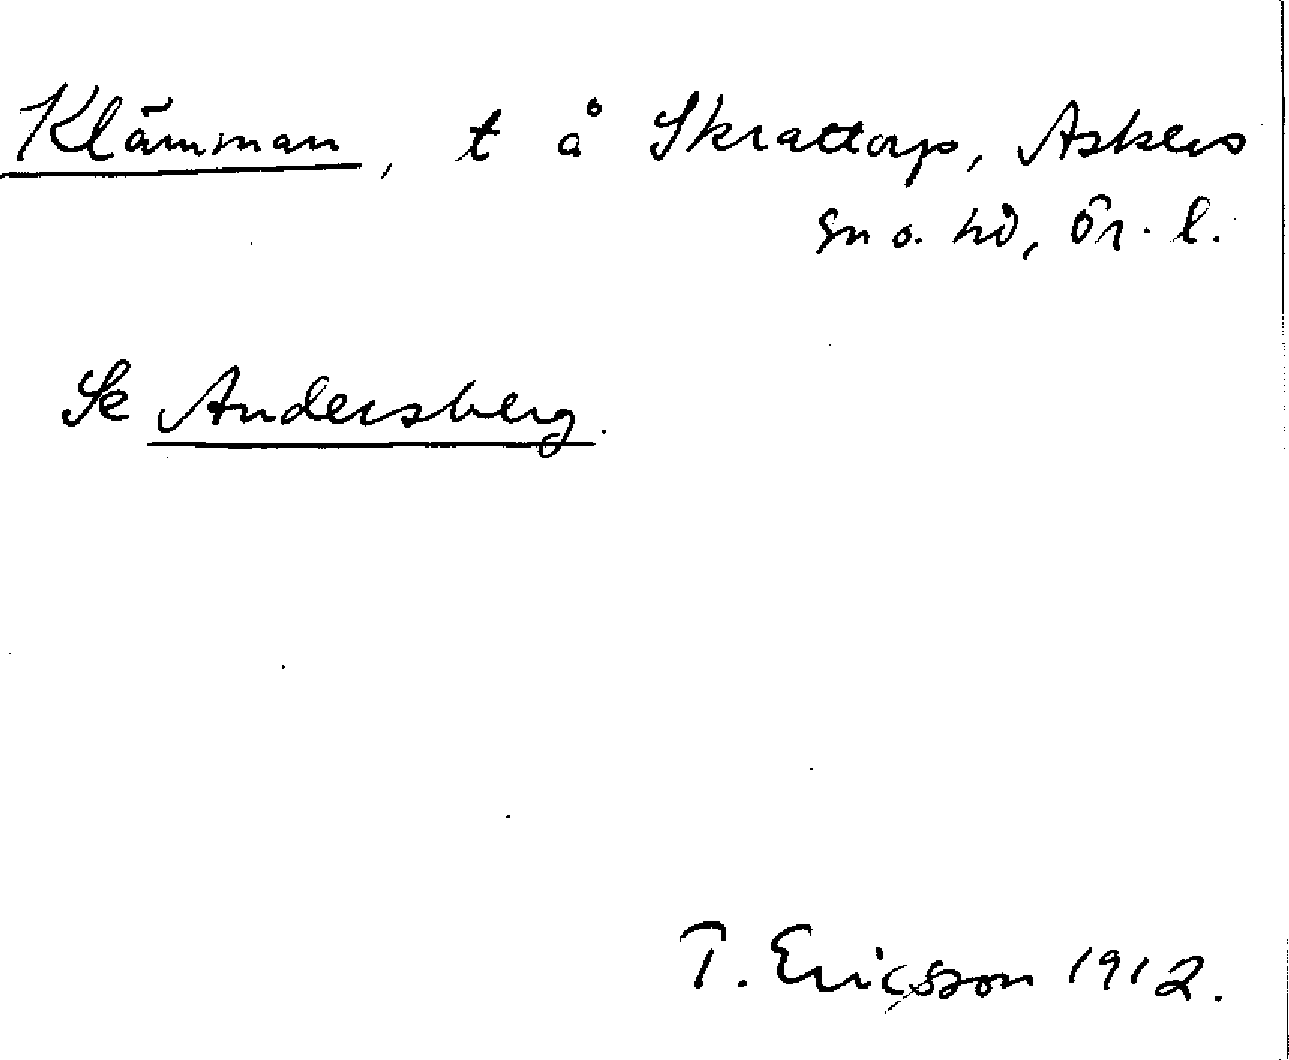 Klämman, t å Skrattorp, Askers
sn o. hd, Ör. l.
Se Andersberg.
T. Ericsson 1912.